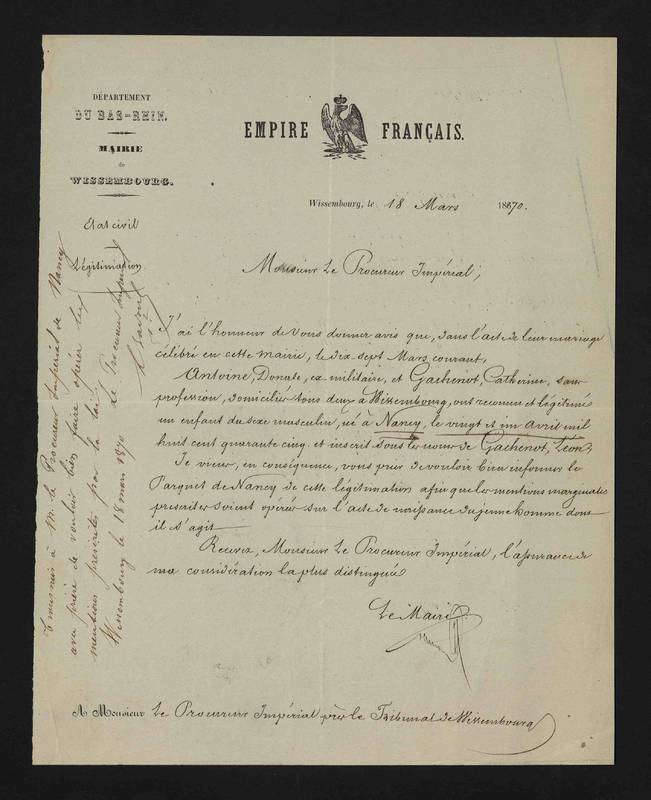 DÉPARTEMENT
DU BAS-RHIN.
MAIRIE
de
WISSEMBOURG.
EMPIRE FRANÇAIS.
Wissembourg, le 18 Mars 1870.
Etat civil
Légitimation
Monsieur Le Procureur Impérial,
J'ai l'honneur de vous donner avis que, dans l'acte de leur mariage
célébré en cette mairie, le dix-sept Mars courant,
Antoine, Donate, ex militaire, et Gachenot, Catherine, sans
profession, domiciliés tous deux à Wissembourg, ont reconnu et légitimé
un enfant du sexe masculin, né à Nancy, le vingt et un avril mil
huit cent quarante cinq, et inscrit sous le nom de Gachenot, Léon,
Je viens, en conséquence, vous prier de vouloir bien informer le
Parquet de Nancy de cette légitimation afin que les mentions marginales
prescrites soient opérées sur l'acte de naissance du jeune homme dont
il s'agit
Recevez, Monsieur Le Procureur Impérial, l'assurance de
ma considération la plus distinguée
Le Maire
A Monsieur Le Procureur Impérial près le Tribunal de Wissembourg
Transmis à M. le Procureur Impérial de Nancy
avec prière de vouloir bien faire opérer les
mentions prescrites par la loi.
Wissembourg le 18 mars 1870
Le Procureur Impérial